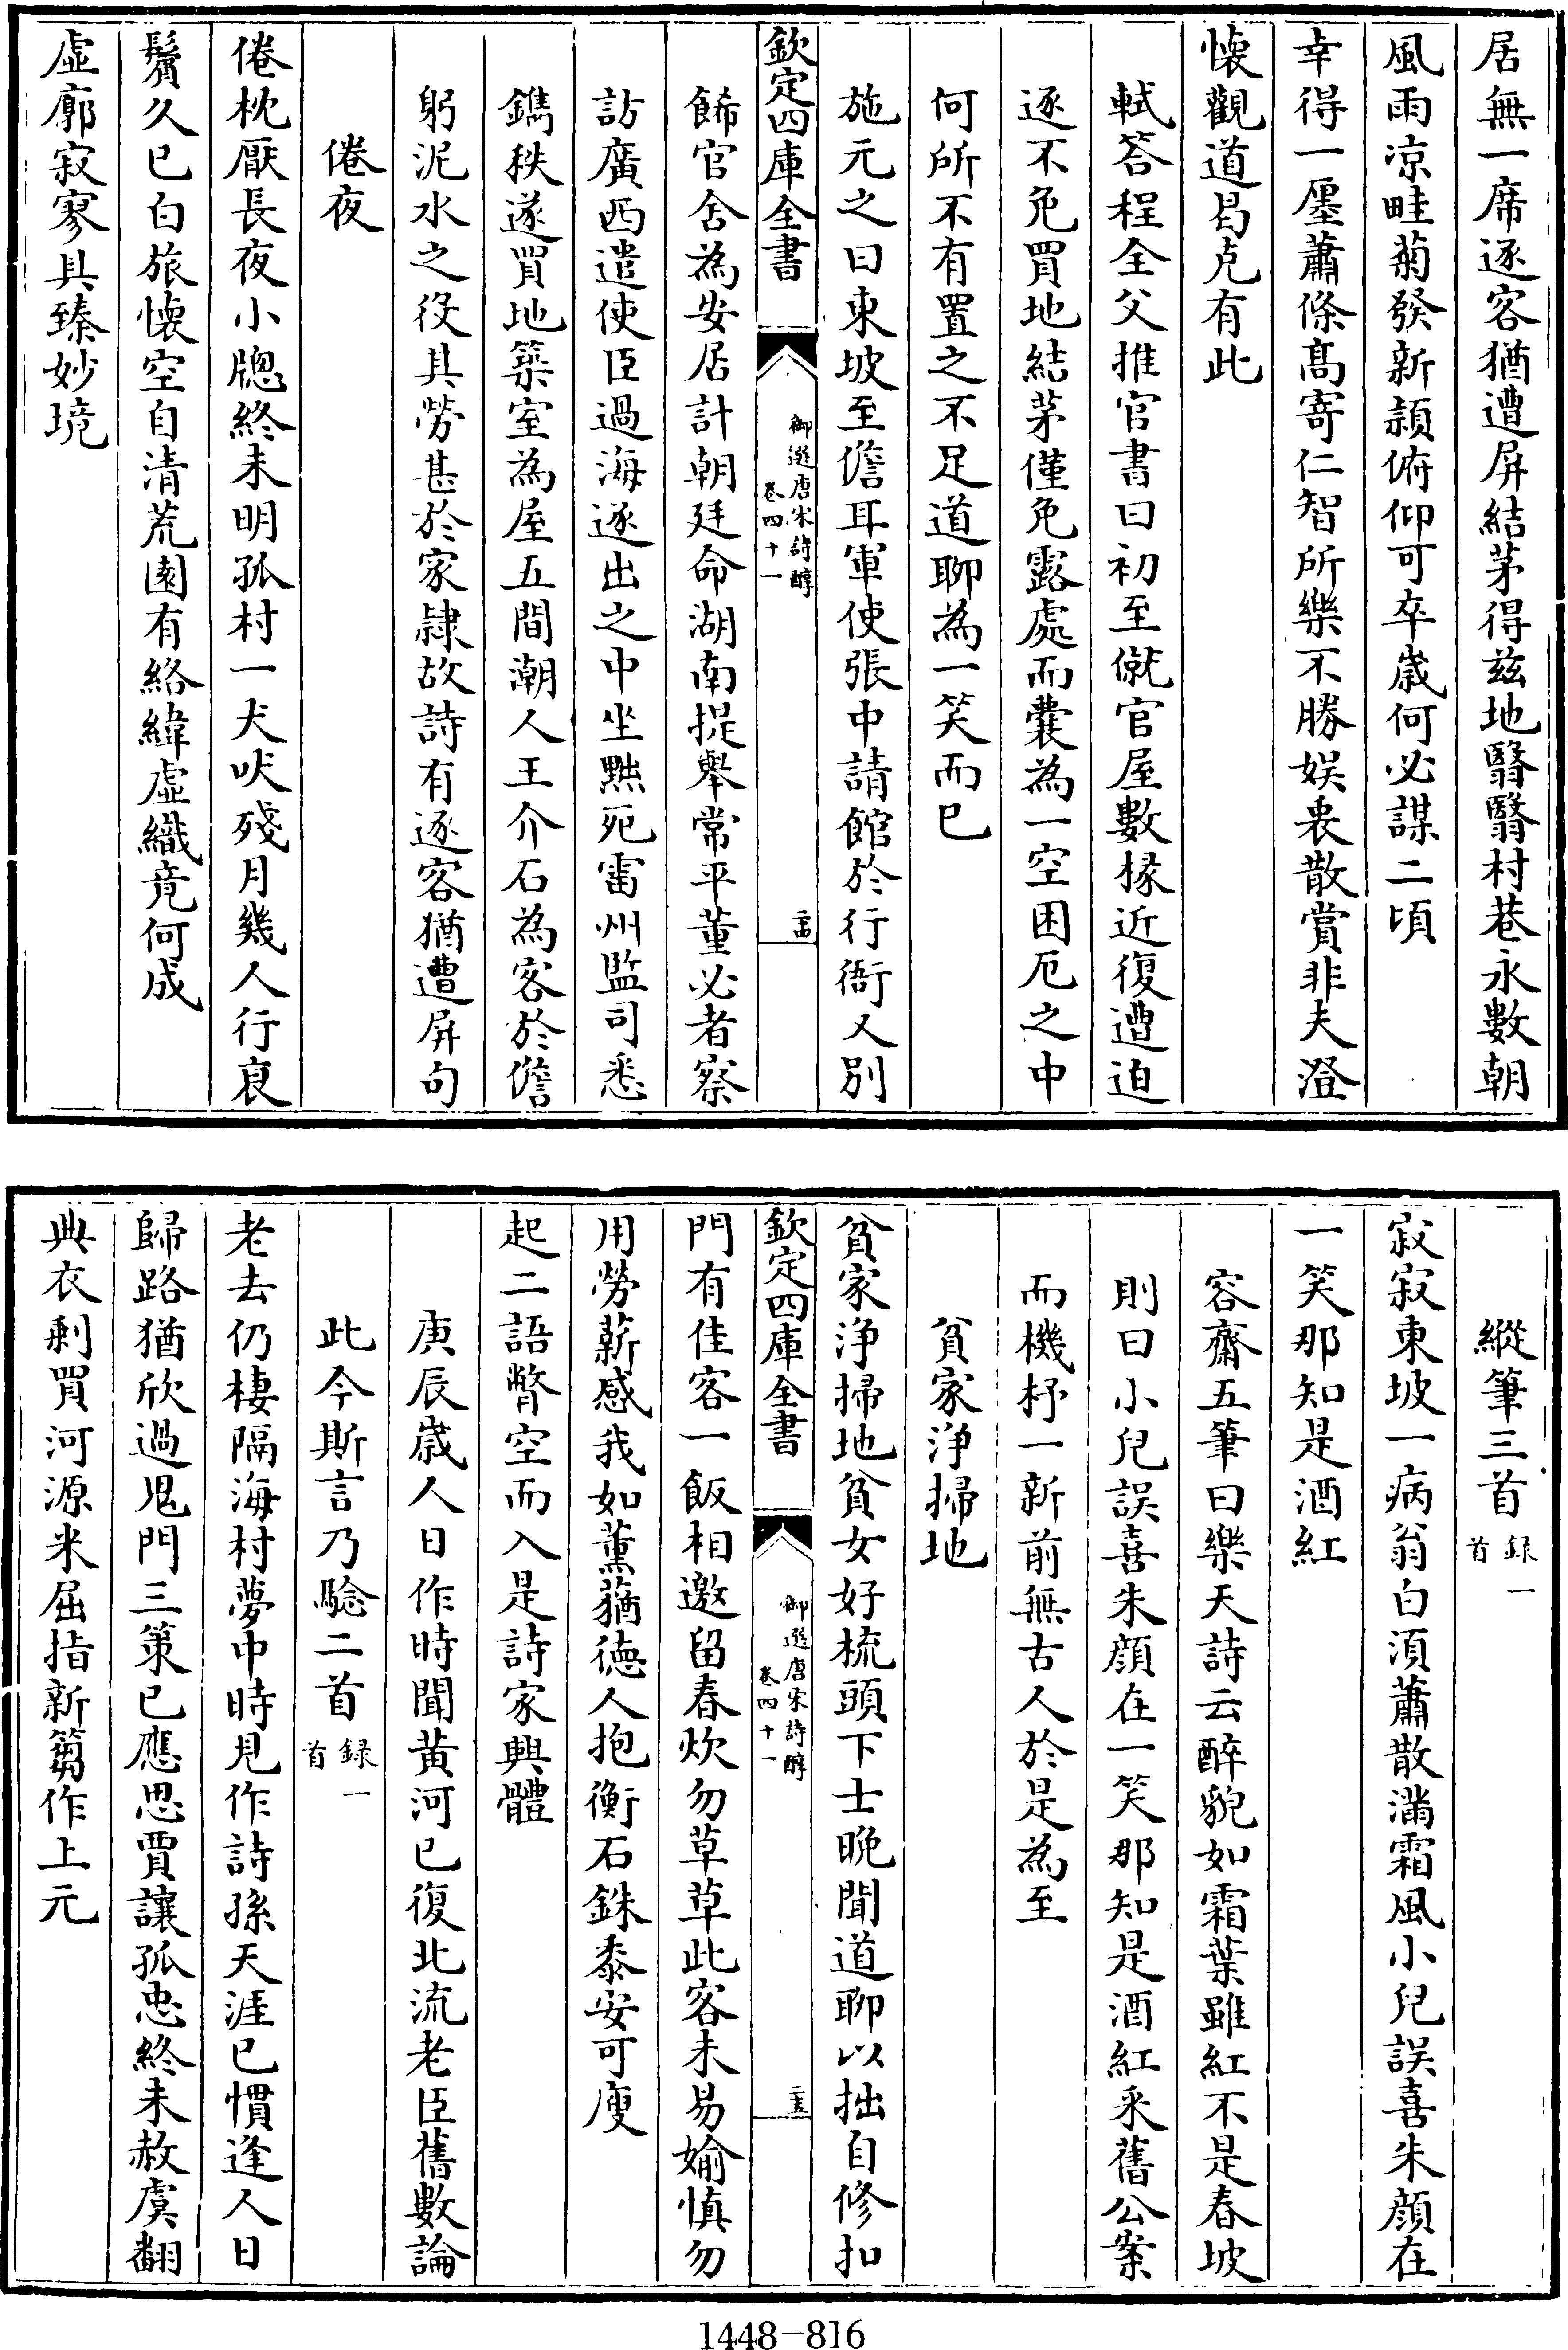 居無一席逐客猶遭屏結茅得兹地翳翳村巷永數朝
風雨凉畦菊發新頴俯仰可卒歲何必謀二頃
幸得一廛蕭條髙寄仁智所樂不勝娱喪散賞非夫澄
懐觀道曷克有此
軾答程全父推官書曰初至僦官屋數椽近復遭迫
逐不免買地結茅僅免露處而囊為一空困厄之中
何所不有置之不足道聊為一笑而已
施元之曰東坡至儋耳軍使張中請館於行衙又别
欽定四庫全書
御選唐宋詩醇
卷四十一
二十四
餙官舍為安居計朝廷命湖南提舉常平董必者察
訪廣西遣使臣過海逐出之中坐黜死雷州監司悉
鐫秩遂買地築室為屋五間潮人王介石為客於儋
躬泥水之役其勞甚於家隷故詩有逐客猶遭屏句
倦夜
倦枕厭長夜小牕終未明孤村一犬吠殘月幾人行衰
鬢久已白旅懐空自清荒園有絡緯虛織竟何成
虛廓寂寥具臻妙境
縱筆三首録一首
寂寂東坡一病翁白湏蕭散滿霜風小兒誤喜朱顔在
一笑那知是酒紅
容齋五筆曰樂天詩云醉貌如霜葉雖紅不是春坡
則曰小兒誤喜朱顔在一笑那知是酒紅釆舊公案
而機杼一新前無古人於是為至
貧家浄掃地
貧家浄掃地貧女好梳頭下士晩聞道聊以拙自修扣
欽定四庫全書
御選唐宋詩醇
卷四十一
二十五
門有佳客一飯相邀留春炊勿草草此客未易媮慎勿
用勞薪感我如薫蕕徳人抱衡石銖黍安可廋
起二語瞥空而入是詩家興體
庚辰歲人日作時聞黄河已復北流老臣舊數論
此今斯言乃騐二首録一首
老去仍棲隔海村夢中時見作詩孫天涯已慣逢人日
歸路猶欣過鬼門三策已應思賈讓孤忠終未赦虞翻
典衣剩買河源米屈指新篘作上元
1448-816